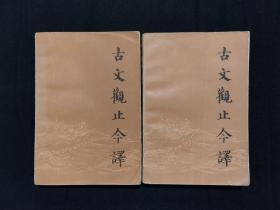 古文觀止今譯
古文觀止今譯